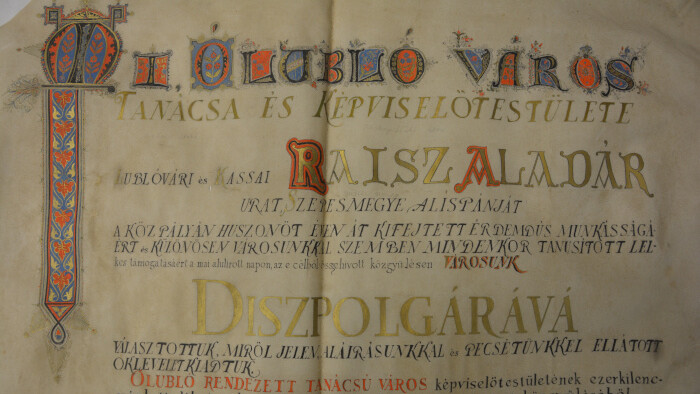 MI, ÓLUBLÓ VÁROS
TANÁCSA ÉS KÉPVISELŐTESTÜLETE
LUBLÓVÁRI és KASSAI RAISZ ALADÁR
URAT, SZEPESMEGYE, ALISPÁNJÁT
A KÖZPÁLYÁN HUSZONÖT ÉVEN ÁT KIFEJTETT ÉRDEMDÚS MUNKÁSSÁGÁ-
ÉRT és KÜLÖNÖSEN VÁROSUNKKAL SZEMBEN MINDENKOR TANUSÍTOTT LEL-
kes támogatásáért a mai alulirott napon, az e célból egybehivott közgyülésen VÁROSUNK
DISZPOLGÁRÁVÁ
VÁLASZTOTTUK, MIRŐL JELEN ALÁIRÁSUNKKAL és PECSÉTÜNKKEL ELLÁTOTT
OKLEVELET KIADTUK.
ÓLUBLÓ RENDEZETT TANÁCSÚ VÁROS képviselőtestületének ezerkilenc-